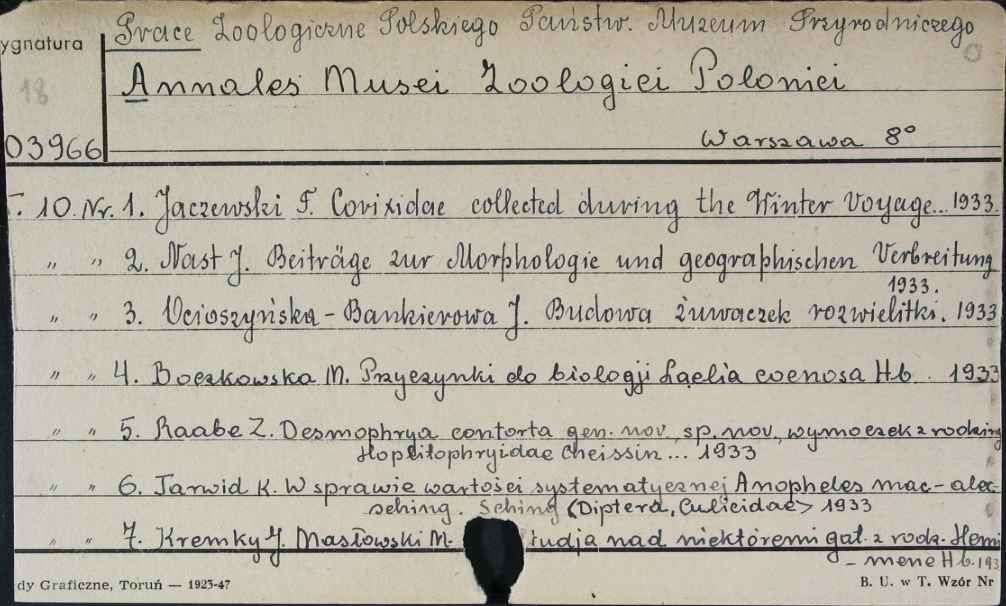 Prace Zoologiczne Polskiego Państw. Muzeum Przyrodniczego
ygnatura
Annales Musei Zoologici Polonici
18
03966
Warszawa 8°
T. 10. Nr. 1. Jaczewski T. Corixidae collected during the Winter Voyage... 1933.
" " 2. Nast J. Beiträge zur Morphologie und geographischen Verbreitung
1933.
" " 3. Ucioszyńska-Bankierowa J. Budowa żuwaczek rozwielitki. 1933
" " 4. Boczkowska M. Przyczynki do biologji Laelia coenosa Hb. 1933
" " 5. Raabe Z. Desmophrya contorta gen. nov., sp. nov., wymoczek z rodziny
Hoplitophryidae Cheissin ... 1933
" " 6. Tarwid K. W sprawie wartości systematycznej Anopheles mac-alec-
sching. Sching (Diptera, Culicidae) 1933
" " 7. Kremky J. Masłowski M. tudja nad niektóremi gat. z rodz. Hemi
- mene Hb. 193
dy Graficzne, Toruń — 1925-47
B. U. w T. Wzór Nr